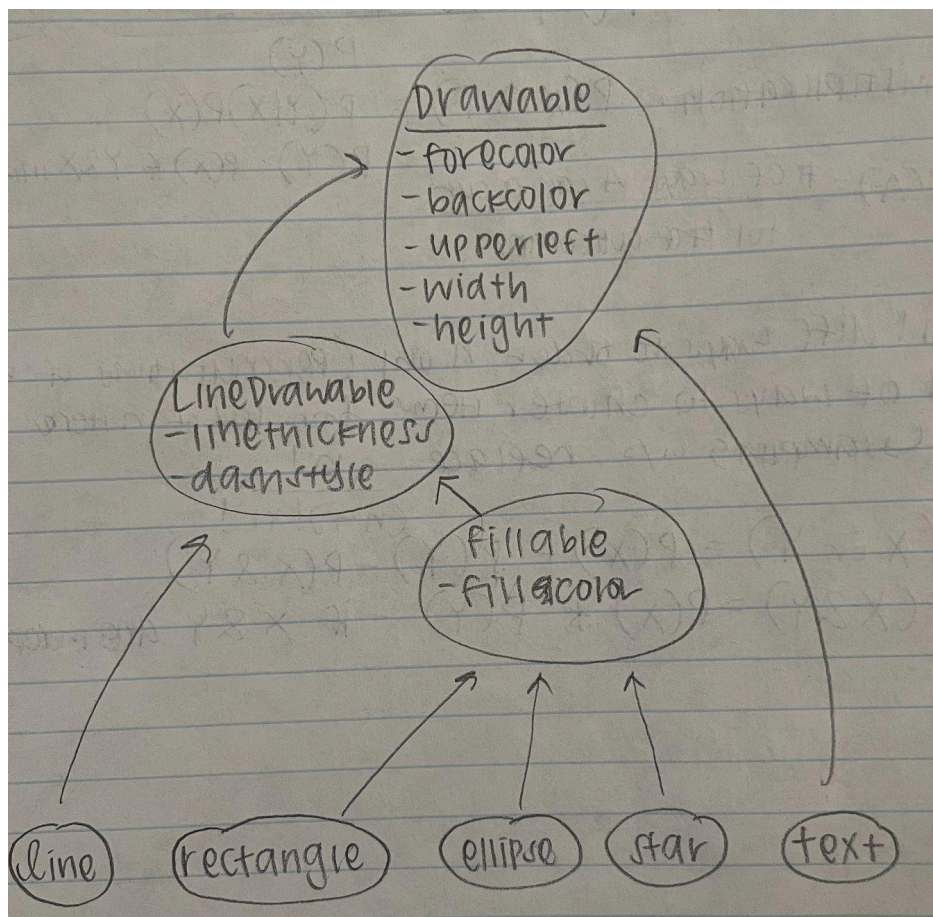 Drawable
- forecolor
- backcolor
- upperleft
- width
- height
LineDrawable
- linethickness
- dashstyle
fillable
- fillcolor
line
rectangle
ellipse
star
text